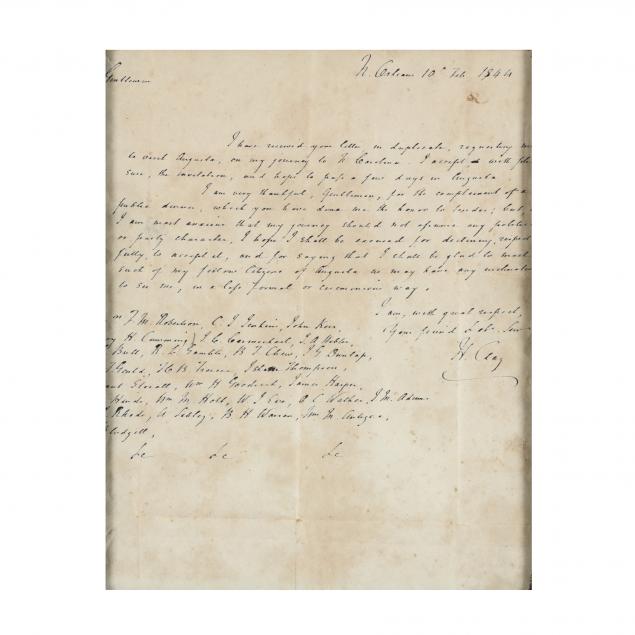 N. Orleans 10th Feb. 1844
Gentlemen
I have received your letter, in duplicate, requesting me
to visit Augusta, on my journey to N Carolina. I accept, with plea
sure, the invitation, and hope to pass a few days in Augusta
I am very thankful, Gentlemen, for the compliment of a
public dinner, which you have done me the honor to tender; but, as
I am most anxious that my journey should not assume any political
or party character, I hope I shall be excused for declining, respect
fully, to accept it, and for saying that I shall be glad to meet
such of my fellow Citizens of Augusta as may have any inclination
to see me, in a less formal or ceremonious way.
I am, with great respect,
Your friend & ob. Serv
H. Clay
F. M. Robertson, C. J. Jenkins, John Kerr,
H Cumming, J. P. Carmichael, J. A. Mebler
Butt, R. L. Gamble, B. F. Chew, J G Dunlap,
Gould, H. B. Frazer, Thompson,
Wm H Goodrich, James Harper,
Wm M. Holt, W. J. Eve, A C Walker, J. M. Adams
Rhodes, N. Sibley, B H Warren, Wm M.
Blodgett,
&c &c &c